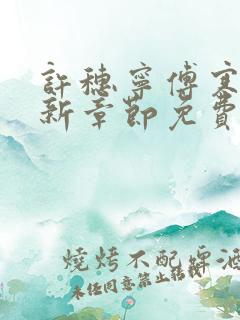 許穗寧傅寒
新章節免費
燒烤不配啤酒
未经同意禁止转载